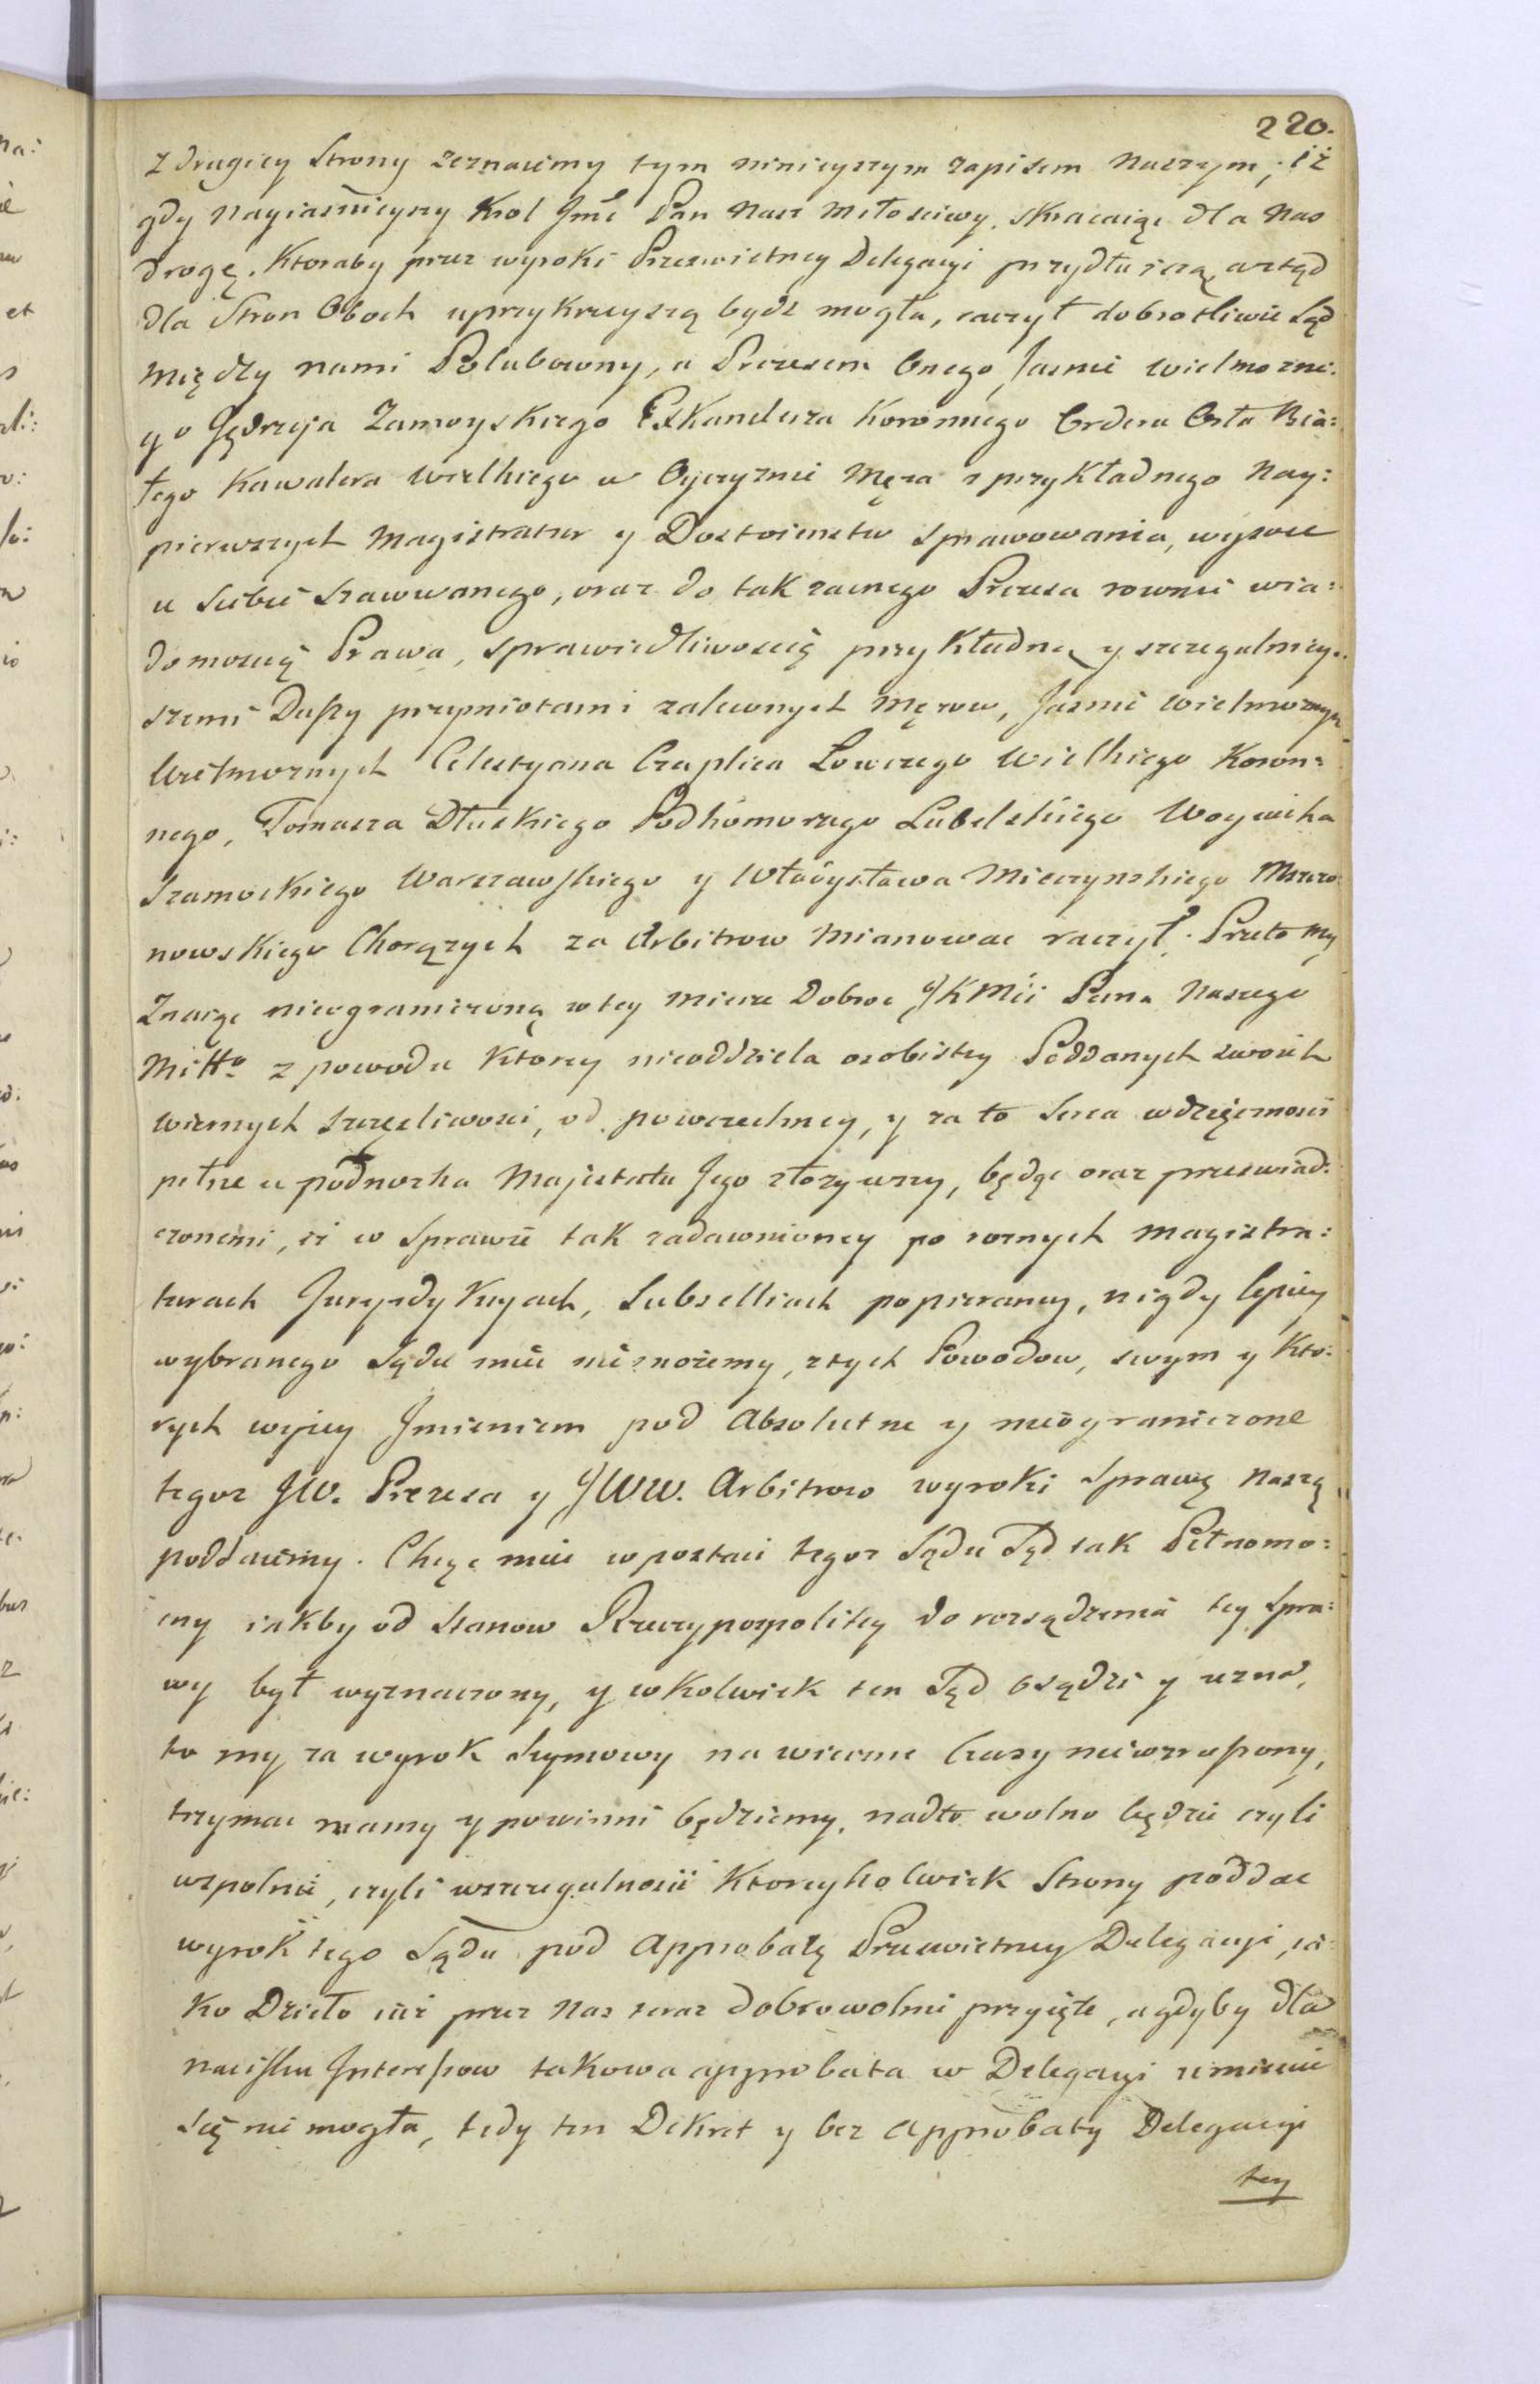 220.
z drugiey Strony zeznaiemy tym ninieyszym zapisem naszym, iż
gdy Nayiasnieyszy Krol Jmć Pan Nasz Miłosciwy, skracaiąc dla Nas
drogę, Ktoraby przez wyroki Przeswietney Delegacyi przydłuższą, a ztąd
dla Stron Oboch uprzykrzeyszą bydz mogła, raczył dobrotliwie Sąd
między nami Polubowny, a Prezesem Onego Jasnie Wielmozne:
go Jędrzeja Zamoyskiego ExKanclerza Koronnego Ordera Orła Bia:
łego Kawalera Wielkiego w Oyczyznie Męza z przykładnego Nay:
pierwszych Magistratur y Dostoienstw Sprawowania, wysoce
u Siebie Szacowanego, oraz do tak zacnego Prezesa rownie wia:
domoscią Prawa, Sprawiedliwoscią przykładną y szczegulniey:
szemi Duszy przymiotami zalewnych Męzow, Jasnie Wielmoznych
Wielmoznych Celestyana Czaplica Łowczego Wielkiego Koron:
nego, Tomasza Dłuskiego Podkomorzego Lubelskiego Woyciecha
Szamockiego Warszawskiego y Władysława Mieczynskiego Mszczo
nowskiego Chorązych za Arbitrow Mianowac raczył. Przeto My
Znaiąc nieograniczoną w tey Mierze Dobroc JKMci Pana Naszego
Miłłgo z powodu Ktorey nieoddziela osobistey Poddanych swoich
wiernych szczęsliwosci, od powszechney, y za to Serca wdzięcznosci
pełne u podnozka Majestatu Jego złozywszy, będąc oraz przeswiad:
czonemi, iż w Sprawie tak zadawnioney po roznych Magistra:
turach Juryzdykcyach, Subselliach popieraney, nigdy lepiey
wybranego Sądu miec niemożemy, z tych Powodow, swym y Kto:
rych wyżey Jmieniem pod Absolutne y nieograniczone
tegoz JW. Prezesa y JWW. Arbitrow wyroki Sprawę Naszą
poddaiemy. Chcąc miec w postaci tegoz Sądu Sąd tak Pełnomo:
cny iakby od Stanow Rzeczypospolitey do rozsądzenia tey Spra:
wy był wyznaczony, y cokolwiek ten Sąd osądzi y uzna,
to my za wyrok Seymowy na wieczne Czasy niewzruszony,
trzymac mamy y powinni będziemy, nadto wolno będzie czyli
wspolnie, czyli wszczegulnosci Ktoreykolwiek Strony poddac
wyrok tego Sądu pod Approbatę Przeswietney Delegacyi, ia:
ko Dzieło iuż przez Nas teraz dobrowolnie przyięte, a gdyby dla
nacisku Interessow takowa approbata w Delegacyi umiescic
Się nie mogła, tedy ten Dekret y bez Approbaty Delegacyi
tey